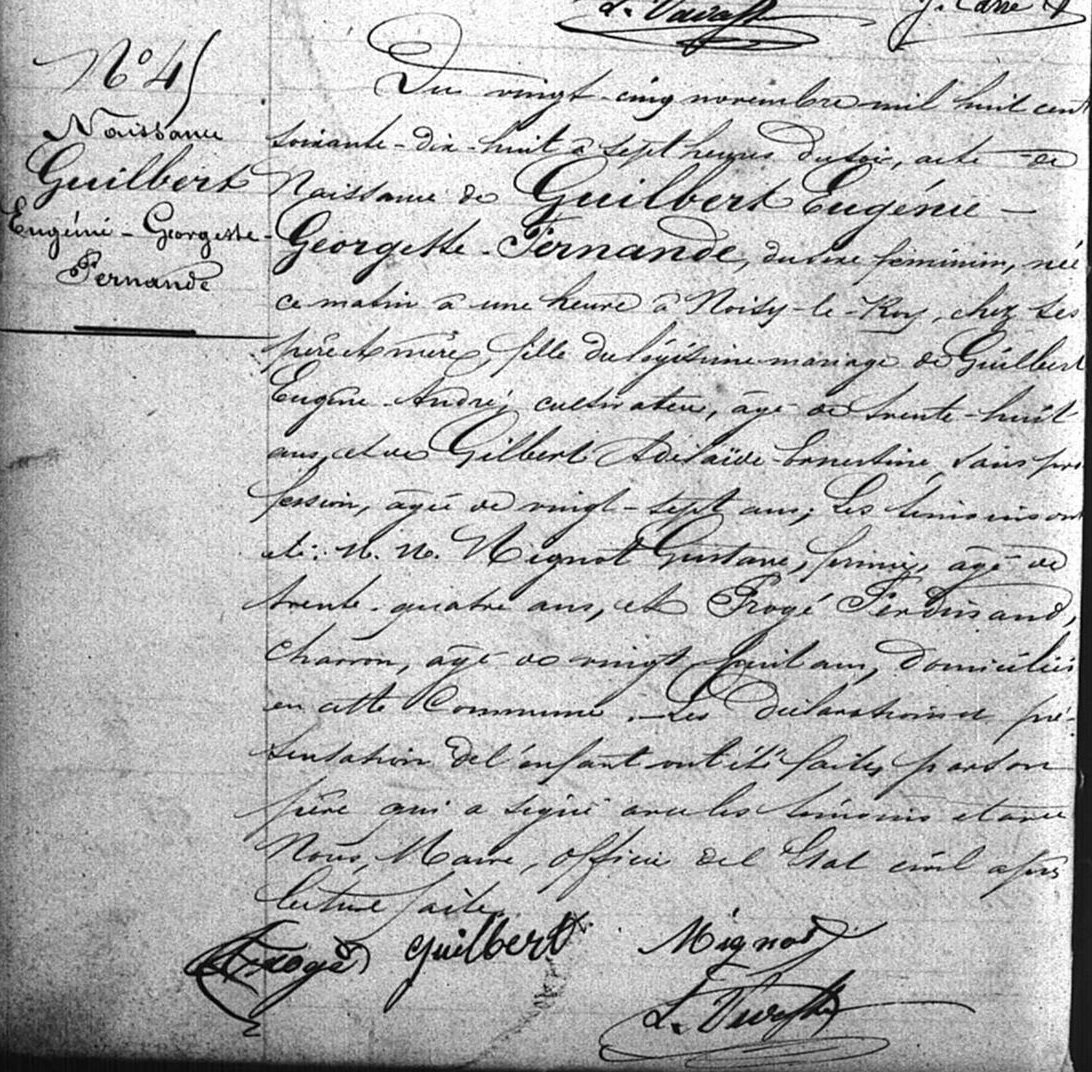 N° 45
Naissance
Guilbert
Eugénie - Georgette -
Fernande
Du vingt-cinq novembre mil huit cent
soixante-dix-huit à sept heures du soir, acte de
Naissance de Guilbert Eugénie -
Georgette - Fernande, du sexe féminin, née
ce matin à une heure à Noisy-le-Roy, chez ses
père et mère, fille du légitime mariage de Guilbert
Eugène-André, cultivateur, âgé de trente-huit
ans, et de Gilbert Adélaïde-Ernestine, sans pro
fession, âgée de vingt-sept ans; Les témoins ont
été: M. M. Mignot Gustave, âgé de
trente-quatre ans, et Frogé Ferdinand,
Charron, âgé de vingt huit ans, domiciliés
en cette Commune. - Les déclaration et pré-
sentation de l'enfant ont été faites par son
père qui a signé avec les témoins et avec
Nous, Maire, officier de l'Etat civil après
lecture faite.
Frogé Guilbert Mignot